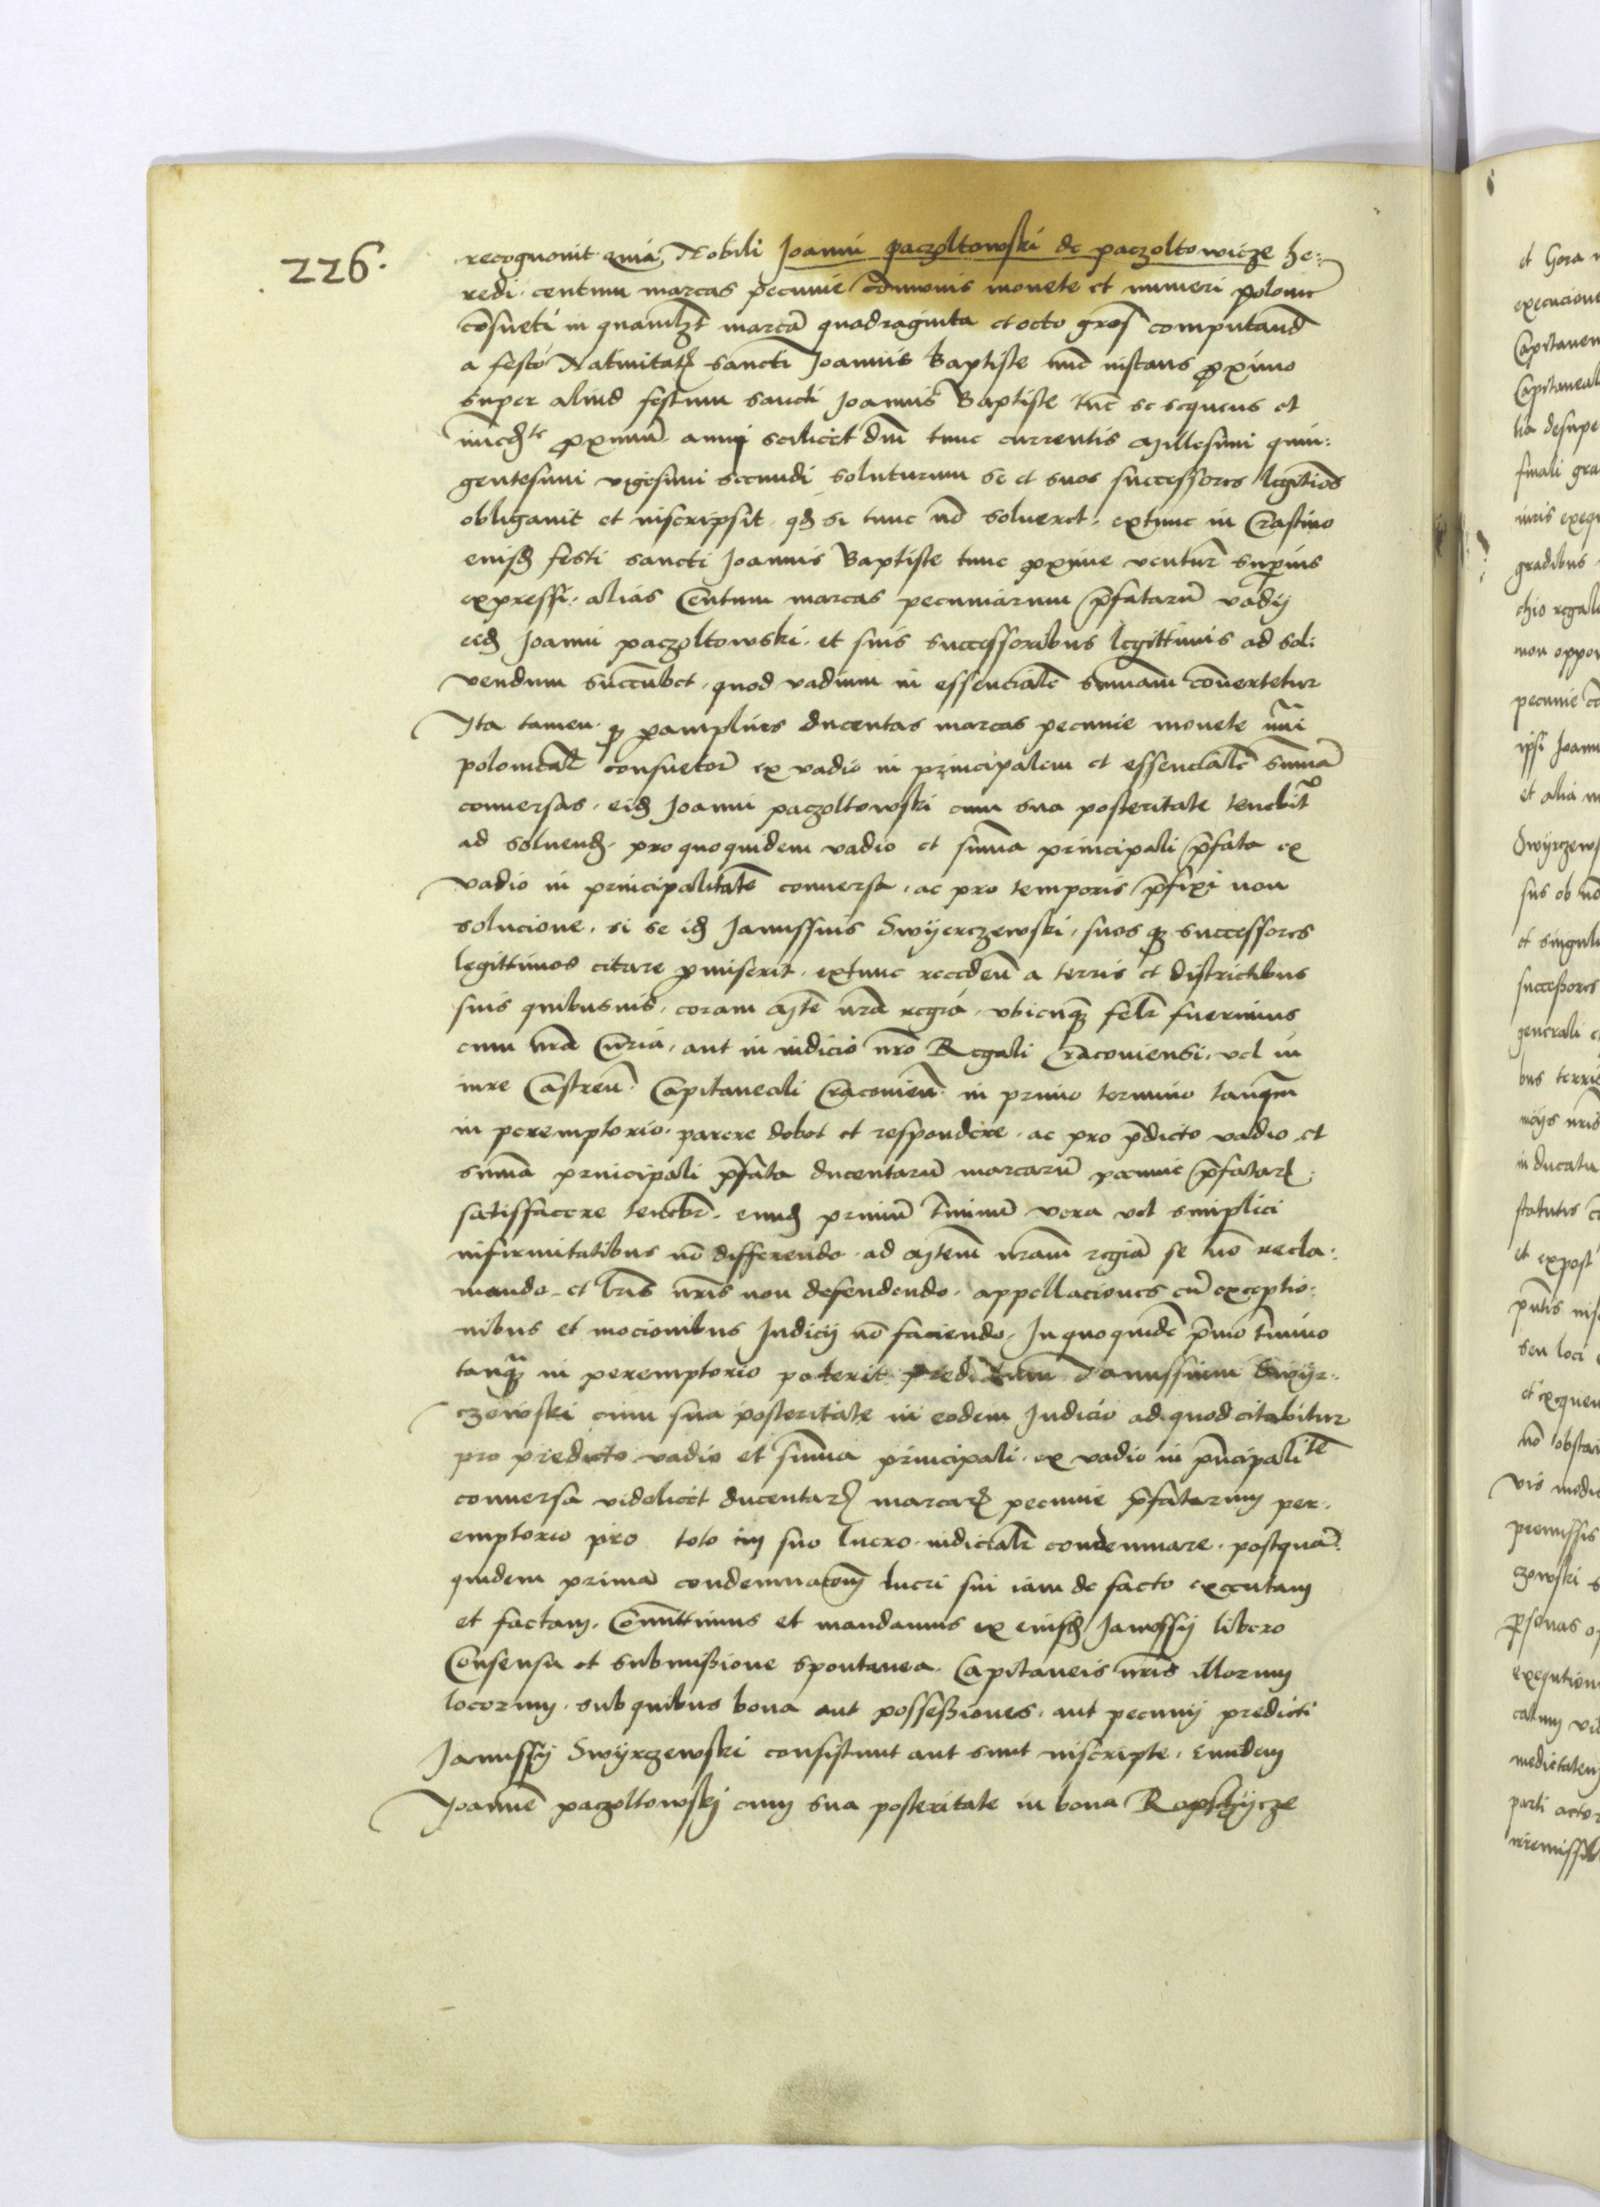 226.
recognovit quia Nobili Joanni paczoltowski de paczoltowicze he-
redi centum marcas pecunie cõmunis monete et numeri polonic
cõsueti in quamlꝫt marcã quadraginta et octo gros computand
a festo Nativitatꝭ sancti Joannis Baptiste nũc instans proximo
super aliud festum sancti Joannis Baptiste tũc se sequens et
proximũ anni scilicet dni tunc currentis Millesimi quin-
gentesimi vigesimi secundi soluturum se et suos successores legitiõs
obligavit et inscripsit qđ si tunc nõ solveret extunc in Crastino
eiusđ festi sancti Joannis Baptiste tunc proxime ventur superius
expressi alias Centum marcas pecuniarum p̃fatarũ vadij
eiđ Joanni paczoltowski et suis successoribus legittimis ad sol-
vendum succũbet quod vadium in essencialẽ summam cõvertetur
Ita tamen ꝙ ꝑamplius ducentas marcas pecunie monete nũi
polonicaľ consuetorũ ex vadio in principalem et essencialẽ summã
conversas eiđ Joanni paczoltowski cum sua posteritate tenebitꝰ
ad solvenđ pro quoquidem vadio et summa principali p̃fata ex
vadio in principalitatẽ conversa ac pro temporis p̃fixi non
solucione si se iđ Janussius Swyerczewski suos ꝙ successores
legittimos citare ꝑmiserit extunc receden a terris et districtibus
suis quibusvis coram Mtẽ nrã regia ubicunqꝫ felr fuerimus
cum nrã Curia aut in iudicio nrõ Regali Cracoviensi vel in
iure Castreñ Capitaneali Cracovien in primo termino tanqm
in peremptorio parere debet et respondere ac pro p̃dicto vadio et
summa principali p̃fata ducentarũ marcarũ pecunie p̃fatarꝭ
satisfacere tenebr eunđ primũ t̃minũ vera vel simplici
infirmitatibus nõ differendo ad Mtem nram regiã se nõ recla-
mando et lr̃is nr̃is non defendendo appellaciones cũ exceptio-
nibus et mocionibus Judicij nõ faciendo In quoquidẽ p̃mo t̃mino
tanqꝫ in peremptorio poterit predictum Janussium Swyr-
czewski cum sua posteritate in eodem Judicio ad quod citabitur
pro predicto vadio et summa principali ex vadio in p̃ncipalitẽ
conversa videlicet ducentarꝭ marcarꝭ pecunie p̃fatarum per-
emptorio pro toto in suo lucro iudicialr condemnare postquã
quidem primã condemnatiom̃ lucri sui iam de facto executam
et factam Comittimus et mandamus ex eiusđ Janussij libero
Consensu et submissione spontanea Capitaneis nr̃is illorum
locorum sub quibus bona aut possessiones aut pecunij predicti
Janussij Swyrczewski consistunt aut sunt inscripte eundem
Joannẽ paczoltowskj cum sua posteritate in bona Ropschycze